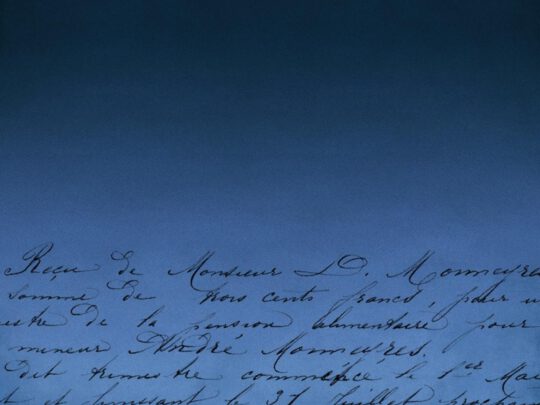 Reçu de Monsieur D. Monneyres
somme de trois cents francs, pour u
estre de la pension alimentaire pour
mineur André Monneyres.
Dit trimestre commence le 1er Mai
et finissant le 31 Juillet prochain